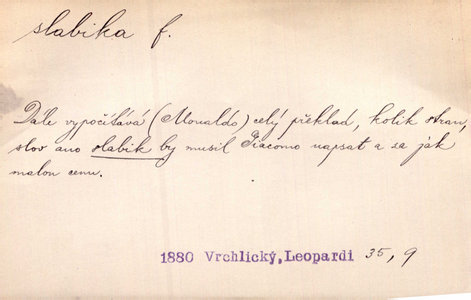 slabika f.
Dále vypočítává (Monaldo) celý překlad, kolik stran,
slov ano slabik by musil Giacomo napsat a za jak
malou cenu.
1880 Vrchlický, Leopardi 35, 9